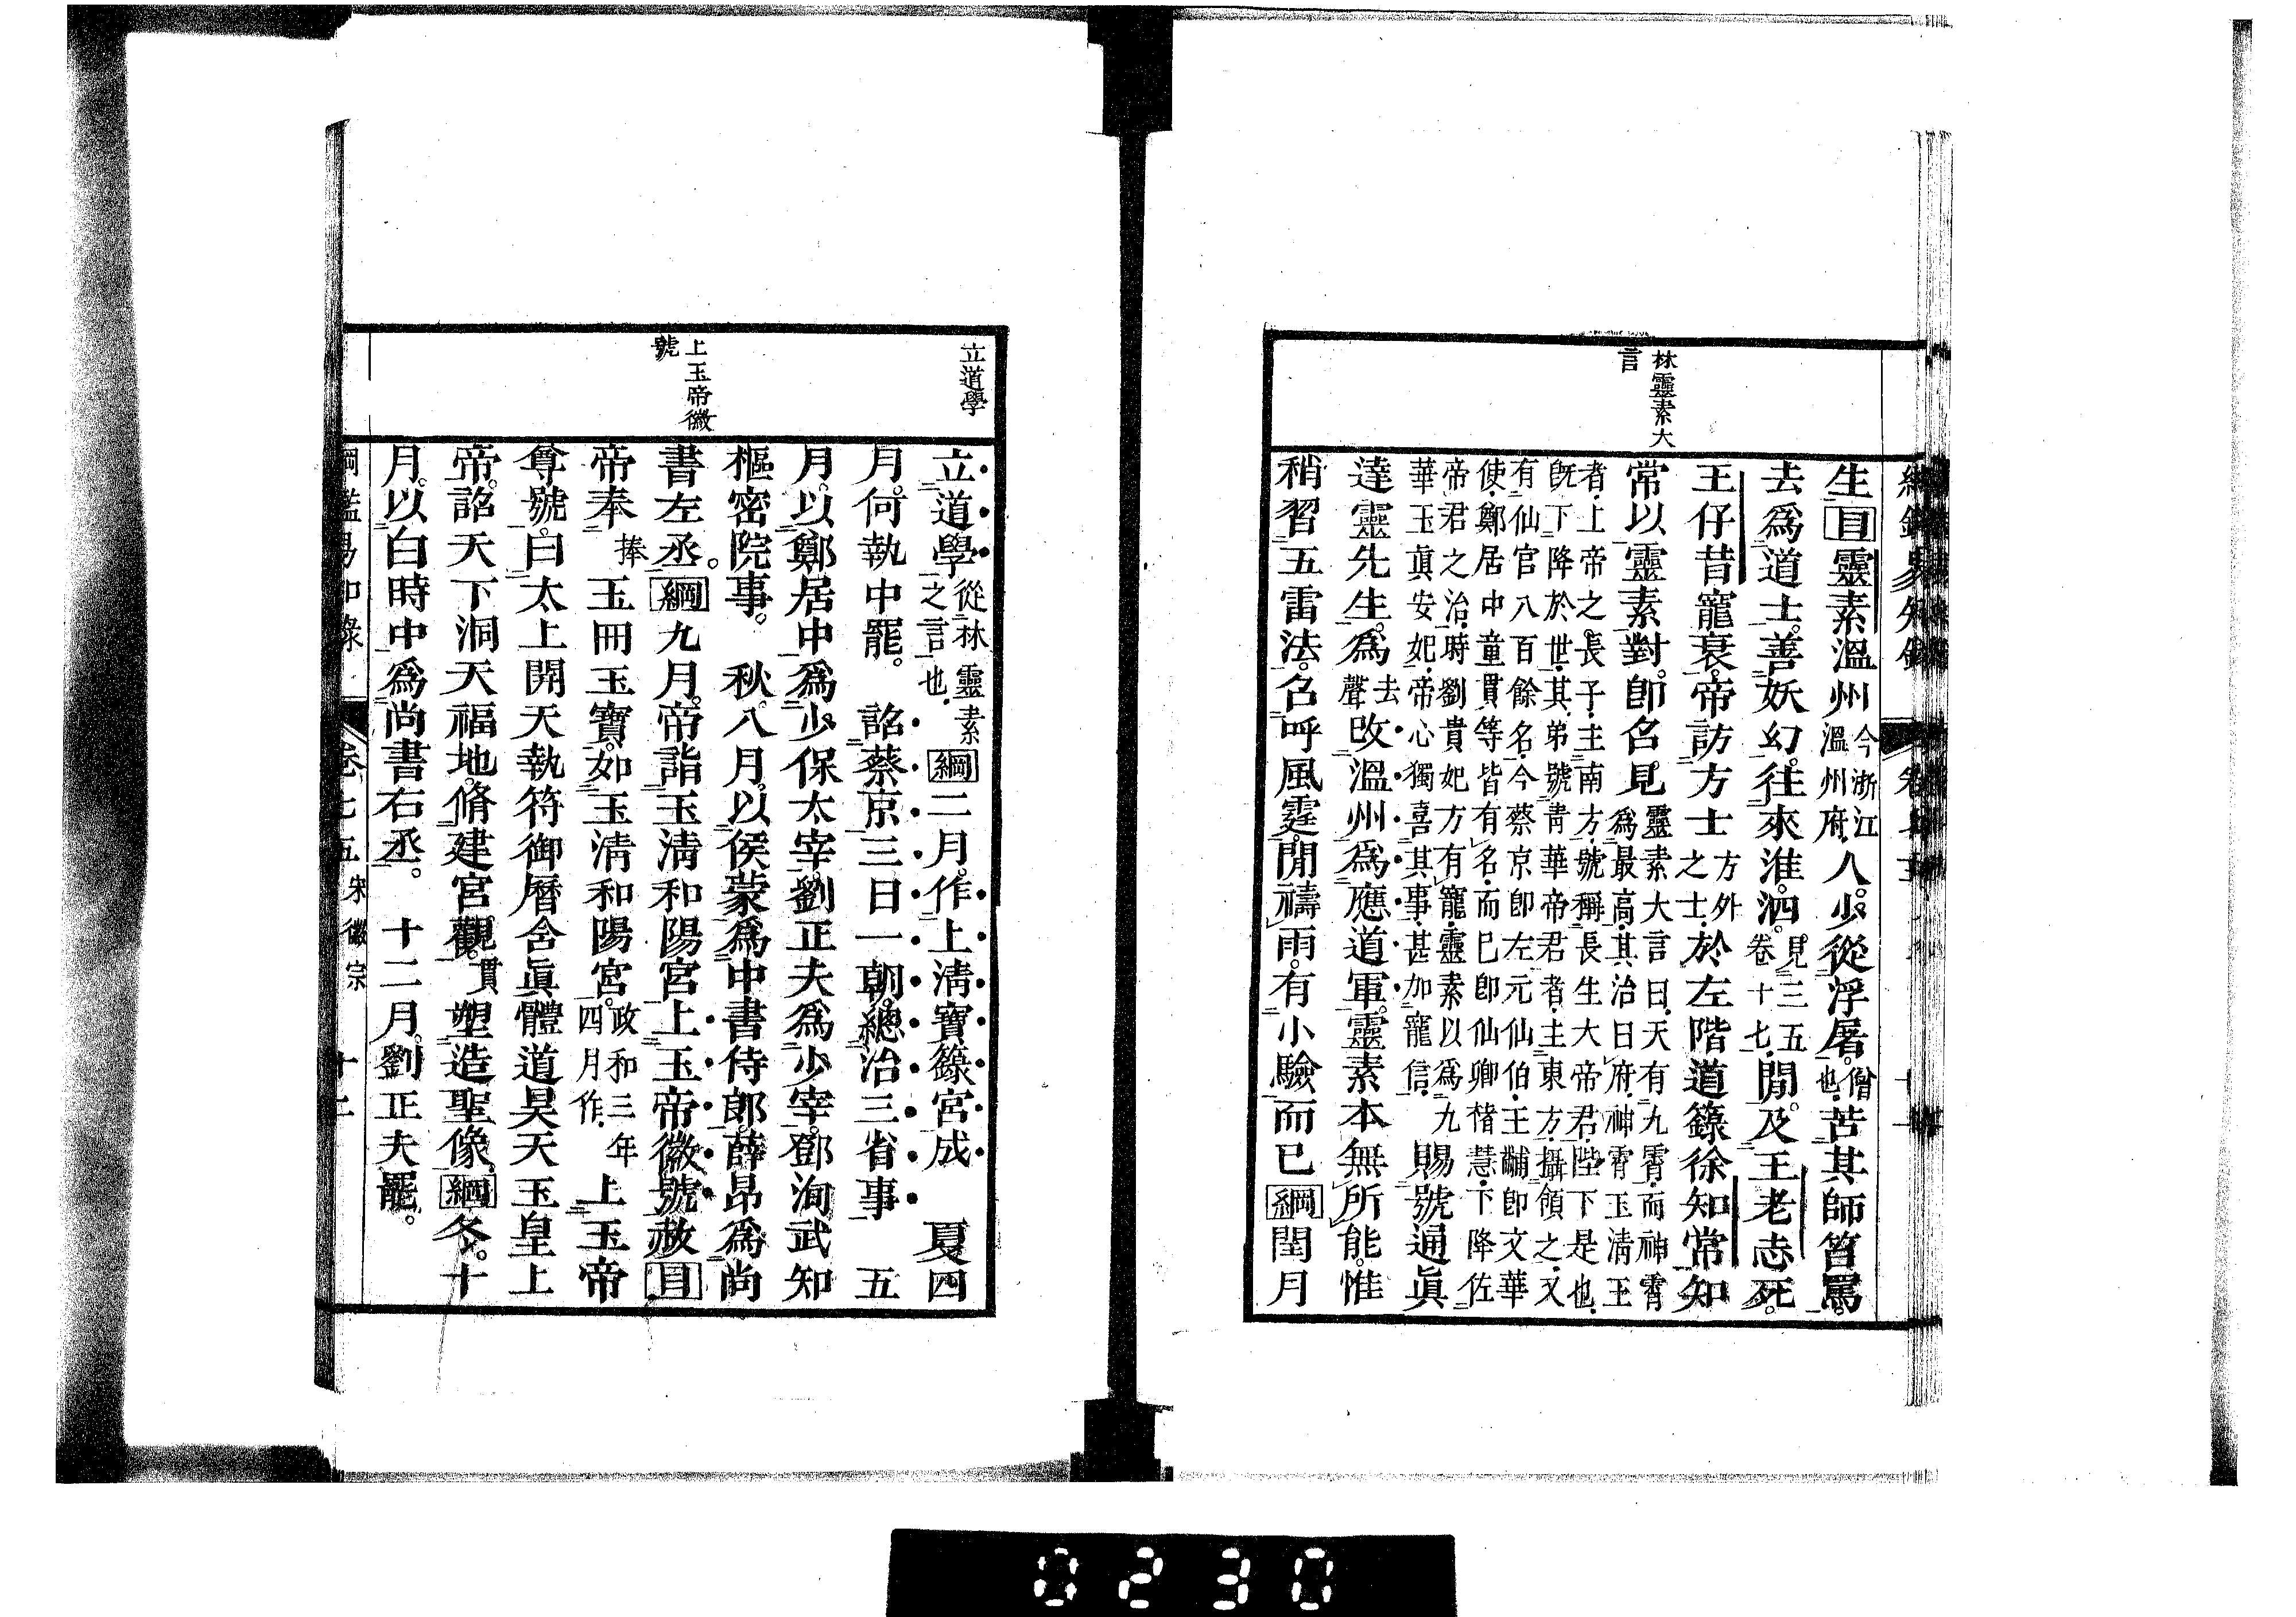 林靈素大
言
生目靈素溫州今浙江溫州府人少從浮屠僧也苦其師笞罵
去爲道士善妖幻往來淮泗見三五卷十七閒及王老志死
王仔昔寵衰帝訪方士方外之士於左階道籙徐知常知
常以靈素對卽名見靈素大言曰天有九霄而神霄
爲最高其治曰府神霄玉淸王
者上帝之長子主南方號稱長生大帝君陛下是也
旣下降於世其弟號靑華帝君者主東方攝領之又
有仙官八百餘名今蔡京卽左元仙伯王黼卽文華
使鄭居中童貫等皆有名而已卽仙卿楮慧下降佐
帝君之治時劉貴妃方有寵靈素以爲九
華玉眞安妃帝心獨喜其事甚加寵信賜號通眞
達靈先生爲去聲攺溫州爲應道軍靈素本無所能惟
稍習五雷法名呼風霆閒禱雨有小驗而已綱閏月
立道學
上玉帝徽
號
立道學從林靈素之言也綱二月作上淸寶籙宮成　夏四
月何執中罷　詔蔡京三日一朝總治三省事　五
月以鄭居中爲少保太宰劉正夫爲少宰鄧洵武知
樞密院事　秋八月以侯蒙爲中書侍郎薛昂爲尚
書左丞綱九月帝詣玉淸和陽宮上玉帝徽號赦目
帝奉捧玉冊玉寶如玉淸和陽宮政和三年四月作上玉帝
尊號曰太上開天執符御曆含眞體道昊天玉皇上
帝詔天下洞天福地脩建宮觀貫塑造聖像綱冬十
月以白時中爲尚書右丞　十二月劉正夫罷
綱鑑易知錄　卷七五　宋徽宗　十二
0230